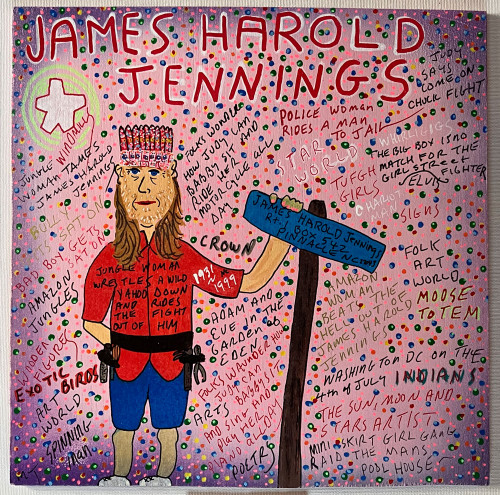 JAMES HAROLD
JENNINGS
JUDY
SAYS
COME ON
CHUCK FIGHT
POLICE WOMAN
RIDES A MAN
TO JAIL
WHIRLIGIG
THE BIG BOY IS NO
MATCH FOR THE
GIRL STREET
FIGHTER
STAR
WORLD
TUFGH
GIRLS
CHARIOT
MAN
SIGNS
FOLK
ART
WORLD
MOOSE
TO TEM
FOLKS WONDER
HOW JUDY CAN
BABBY IT AND
RIDE HER
MOTORCYCLE ALL
DAY
JUNGLE
WOMAN TAMES
JAMES HAROLD
JENNINGS
BULLY
IS SAT ON
BAD BOY GETS
SAT ON
AMAZON
JUNGLES
WOODEN
FIGURES
EXOTIC
BIRDS
ART
WORLD
SPINNING
MAN
CROWN
JAMES HAROLD JENNINGS
RT. 1 BOX
PINNACLE NC
JUNGLE WOMAN
WRESTLES A WILD
YAHOO DOWN
AND RIDES
THE FIGHT
OUT OF HIM
1931
1999
ADAM AND
EVE IN THE
GARDEN OF
EDEN
FOLKS WONDER HOW
JUDY CAN
BABBY IT
AND SING AND
PLAY HER
BANJO ALL DAY
ARTS
POETRY
AMAZON
WOMAN
BEATS THE
HELL OUT OF
JAMES HAROLD
JENNINGS
WASHINGTON DC ON THE
4TH OF JULY
INDIANS
THE SUN, MOON AND
STARS ARTIST
MINI SKIRT GIRL GANG
RAID THE MANS
POOL HOUSE